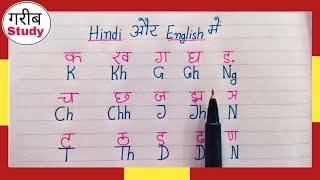 गरीब
Study
Hindi और English में
क ख ग घ ङ
K Kh G Gh Ng
च छ ज झ ञ
Ch Chh J Jh N
ट ठ ड ढ ण
T Th D D N